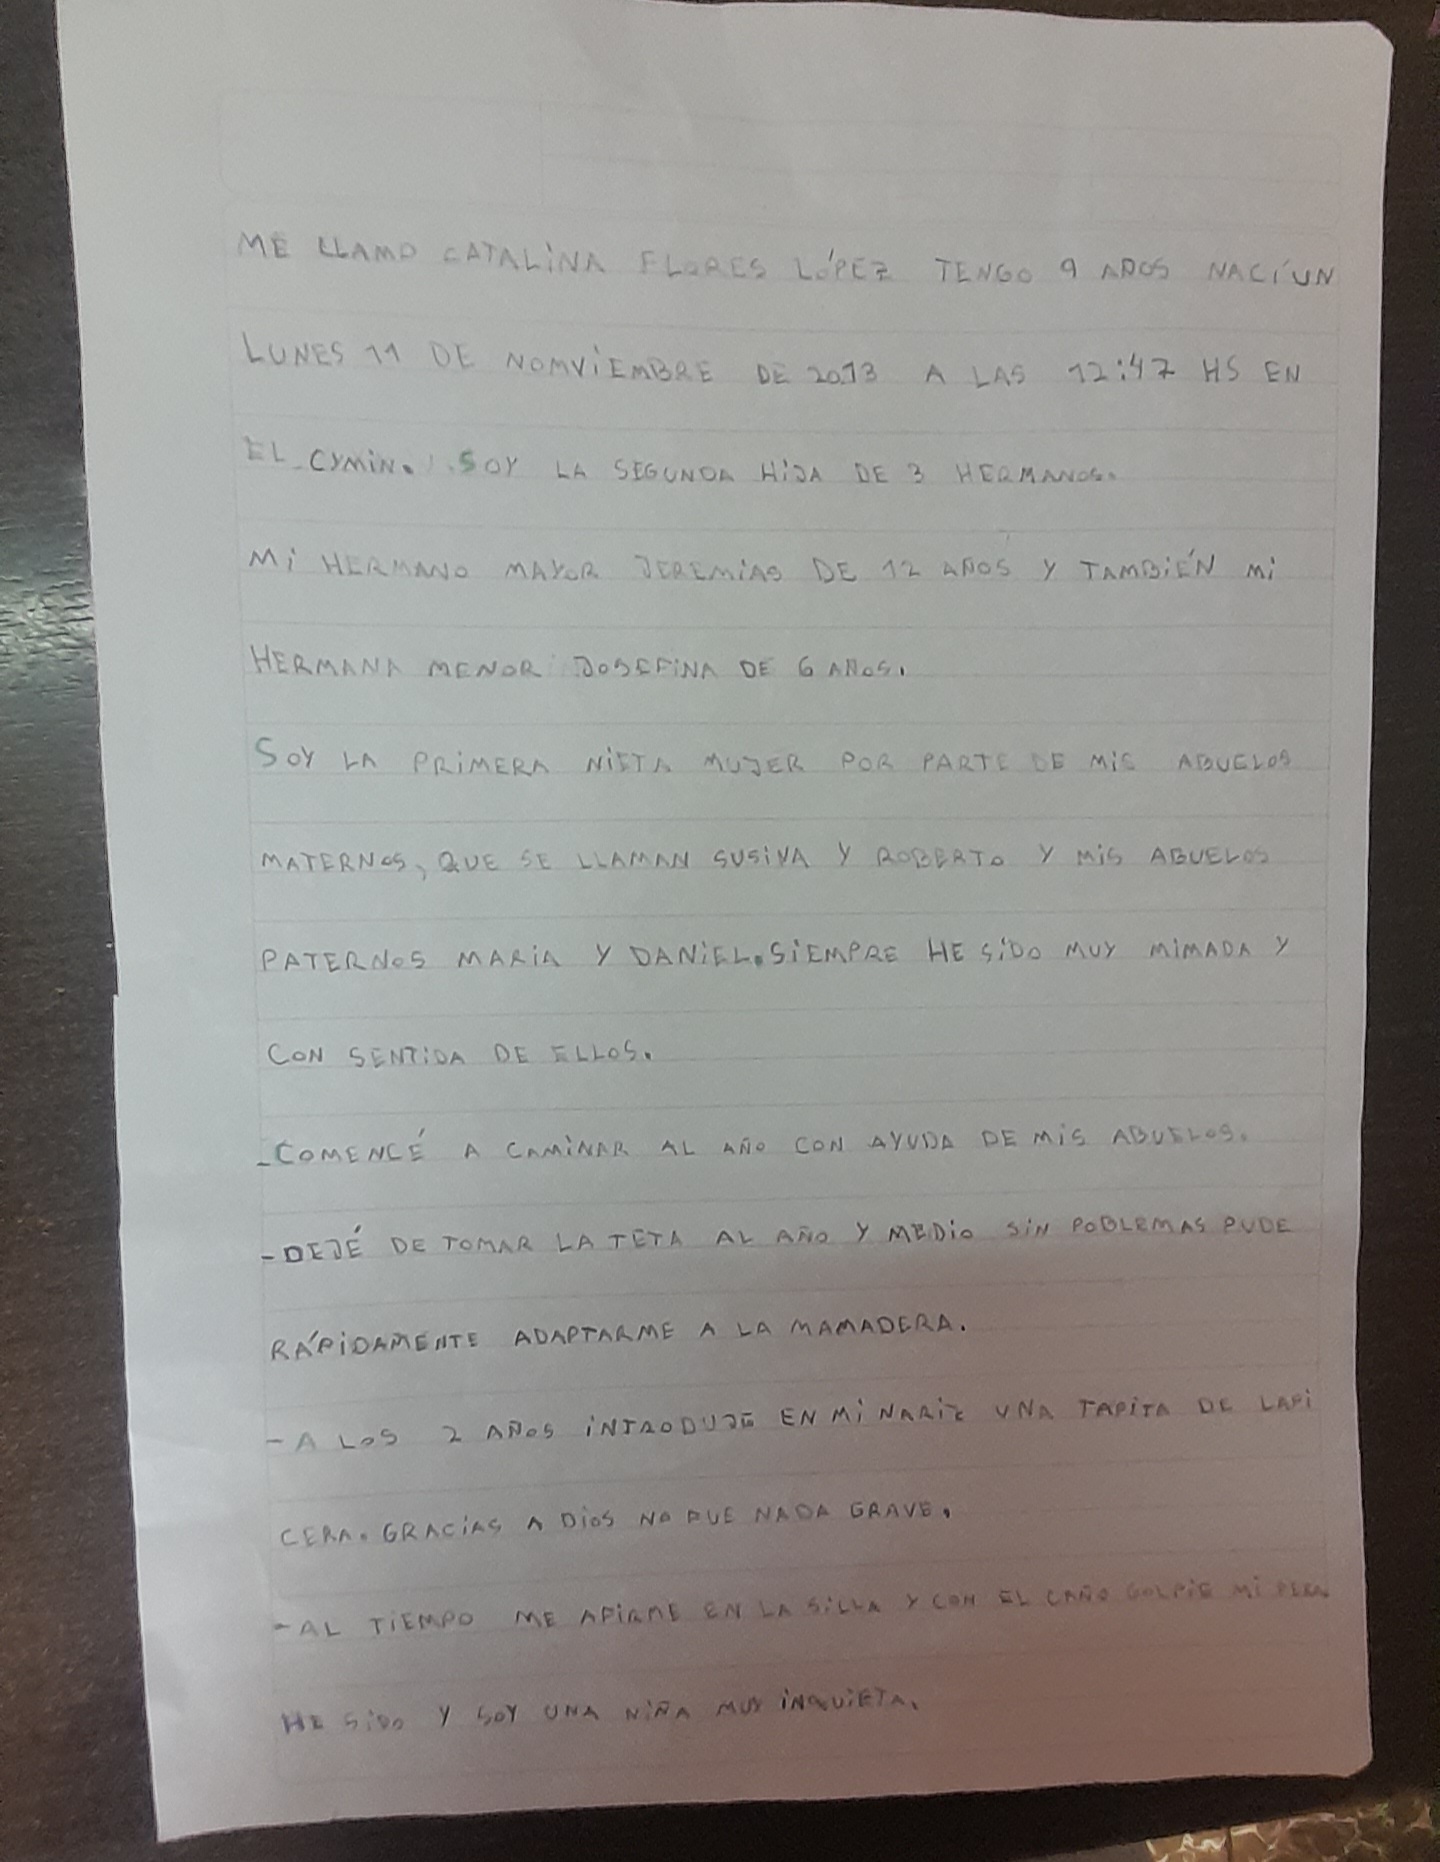 ME LLAMO CATALINA FLORES LÓPEZ TENGO 9 AÑOS NACÍ UN
LUNES 11 DE NOMVIEMBRE DE 2013 A LAS 12:47 HS EN
EL CYMIN. SOY LA SEGUNDA HIJA DE 3 HERMANOS.
MI HERMANO MAYOR JEREMIAS DE 12 AÑOS Y TAMBIÉN MI
HERMANA MENOR JOSEFINA DE 6 AÑOS.
SOY LA PRIMERA NIETA MUJER POR PARTE DE MIS ABUELOS
MATERNOS, QUE SE LLAMAN Y ROBERTO Y MIS ABUELOS
PATERNOS MARIA Y DANIEL. SIEMPRE HE SIDO MUY MIMADA Y
CON SENTIDA DE ELLOS.
- COMENCÉ A CAMINAR AL AÑO CON AYUDA DE MIS ABUELOS.
- DEJÉ DE TOMAR LA TETA AL AÑO Y MEDIO SIN POBLEMAS PUDE
RÁPIDAMENTE ADAPTARME A LA MAMADERA.
- A LOS 2 AÑOS INTRODUJE EN MI NARIZ UNA TAPITA DE LAPI
CERA. GRACIAS A DIOS NO FUE NADA GRAVE.
- AL TIEMPO ME AFIRME EN LA SILLA Y CON EL CAÑO GOLPIE MI
HE SIDO Y SOY UNA NIÑA MUY INQUIETA.